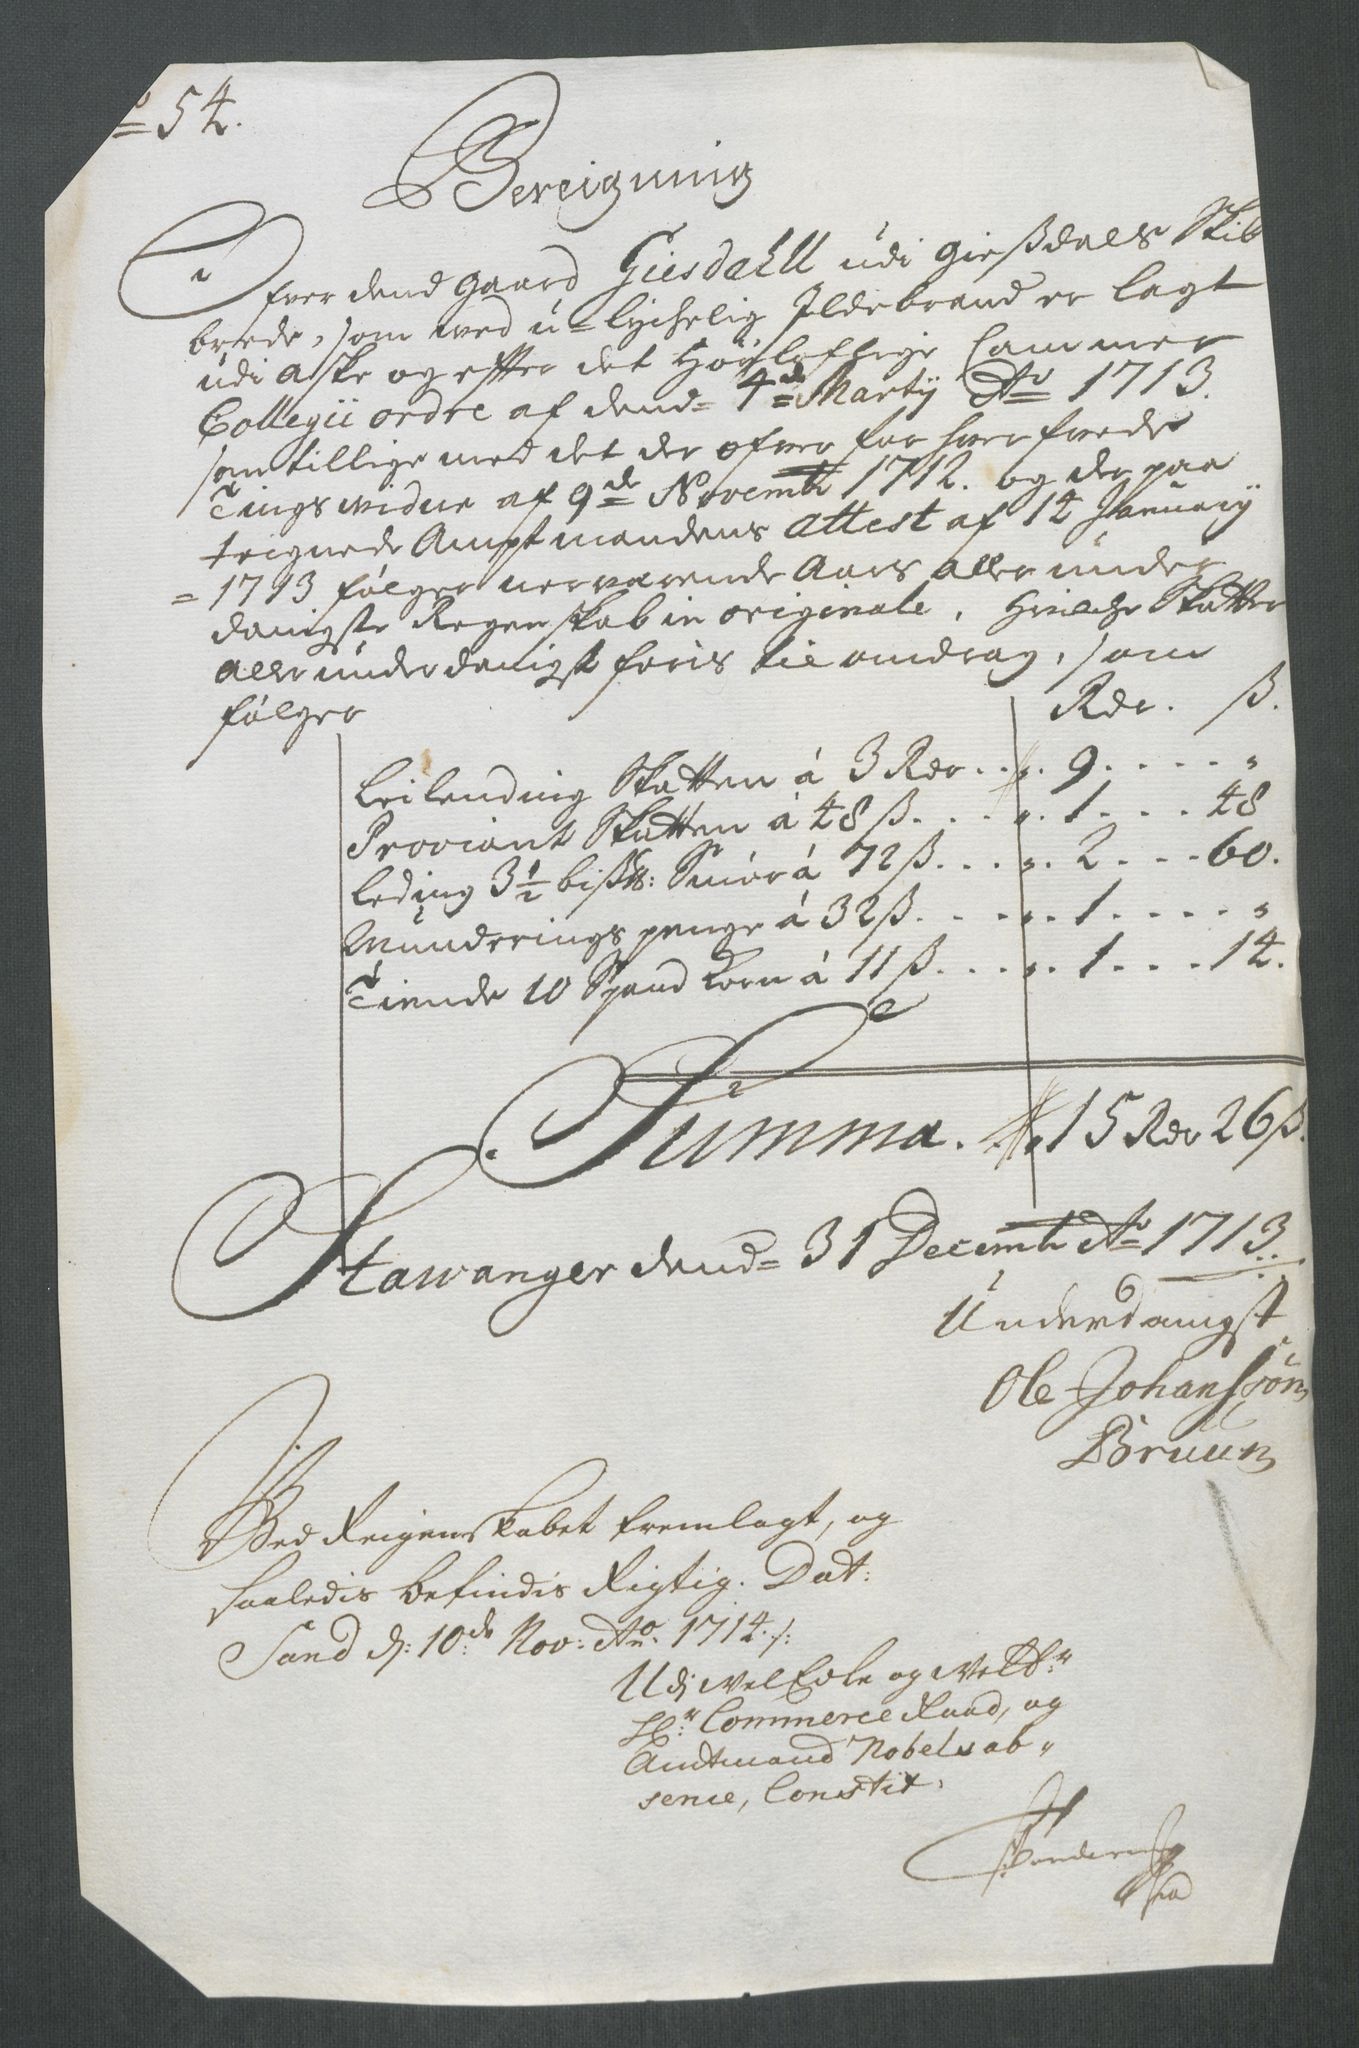 54.
Bereigning
Ofver dend gaard Giesdahll udi gießdals Skib
brede, som ved u-lychelig Ildebrand er lagt
udi aske og effter det Høylofflige Cammer
Collegii ordre af dend 4de Marty Ao 1713.
samt tillige med det der ofver for hver frede
Tings vidne af 9de Novembr 1712. og der paa
teignede Amptmandens attest af 14 January
1713 følger nerværende Aars aller under
danigste Regenskab in originale, hvilche Skatter
aller underdanigst føris til omdrag, som
følger
Rdr. ß.
Leilending Skatten á 3 Rdr. . . 9. . . . . "
Proviant Skatten á 48 ß. . . . 1. . . 48
Leding 3 1/2 bißk: Smør á 72 ß. . . . 2. . . 60.
Munderings penge á 32 ß. . . . 1. . . . . "
Tiende 10 Spand Korn á 11 ß. . . . 1. . . 14.
Summa. 15 Rdr 26 ß.
Stawanger dend 31 Decembr Ao 1713.
Underdanigst
Ole Johanssøn
Bruun
Ved Reigenskabet fremlagt, og
saaledis befindis Rigtig. Dat:
Sand d: 10de Nov: Ao. 1714./:
Udj Vel Edle og Velb:r
Hr: Commerce Raad, og
Amtmand Nobels ab-
sence, Constit: